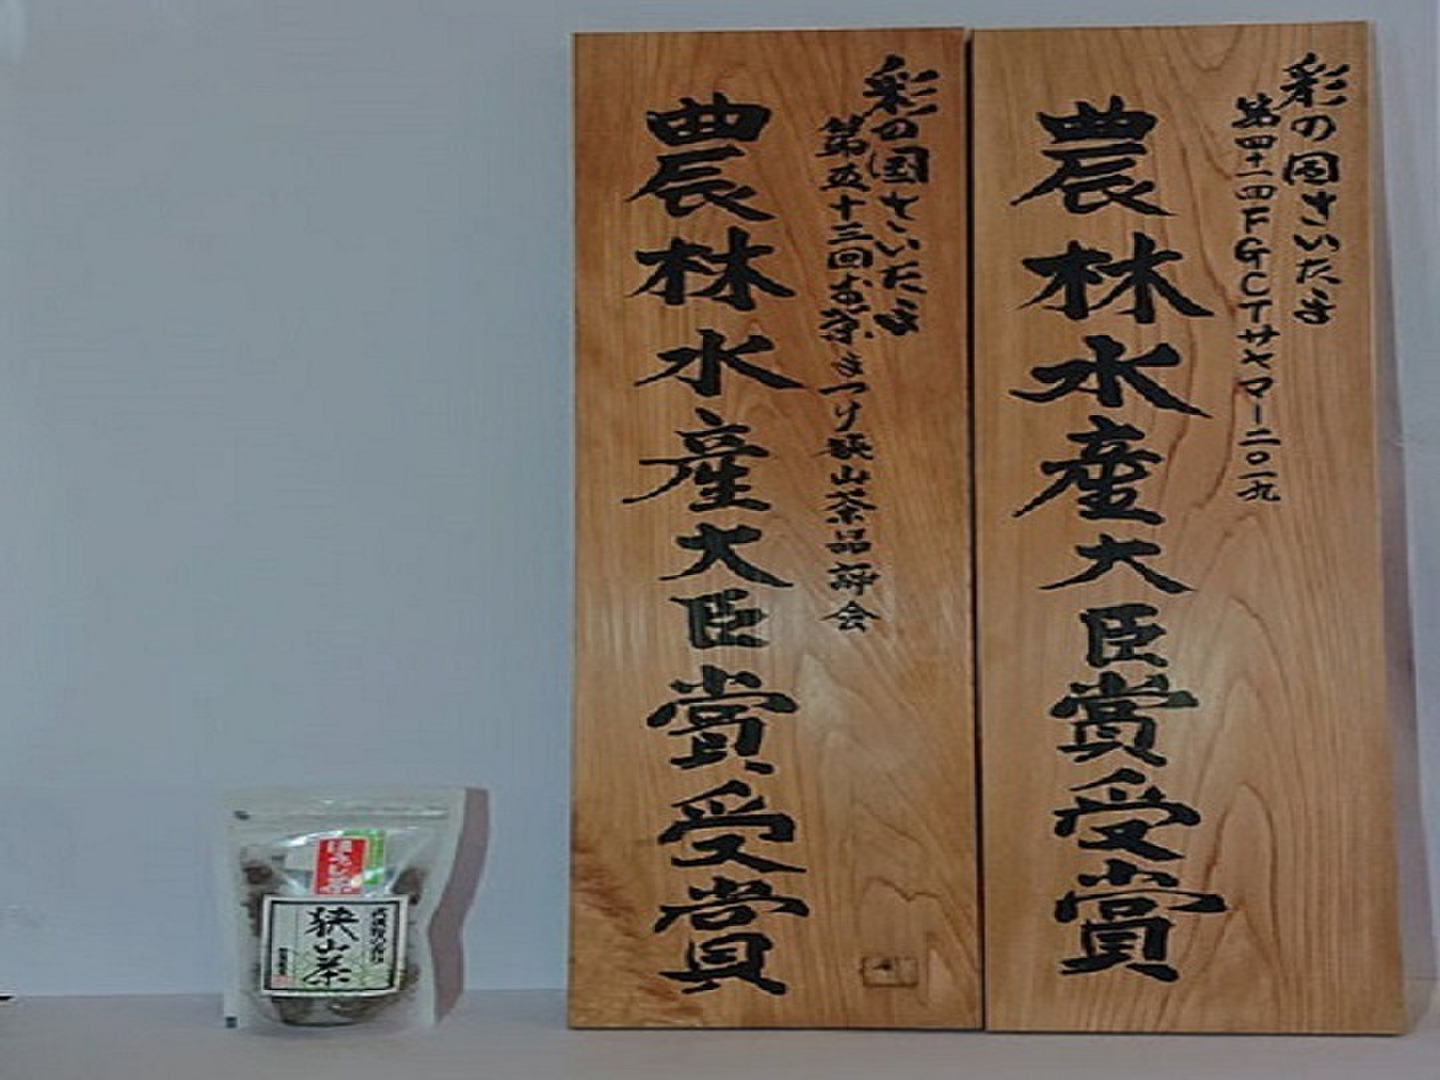 彩の国さいたま
第四十一回FGCTサヤマー二〇一九
農林水産大臣賞受賞
彩の国さいたま
第五十三回お茶まつり狭山茶品評会
農林水産大臣賞受賞
ほうじ茶
狭山茶